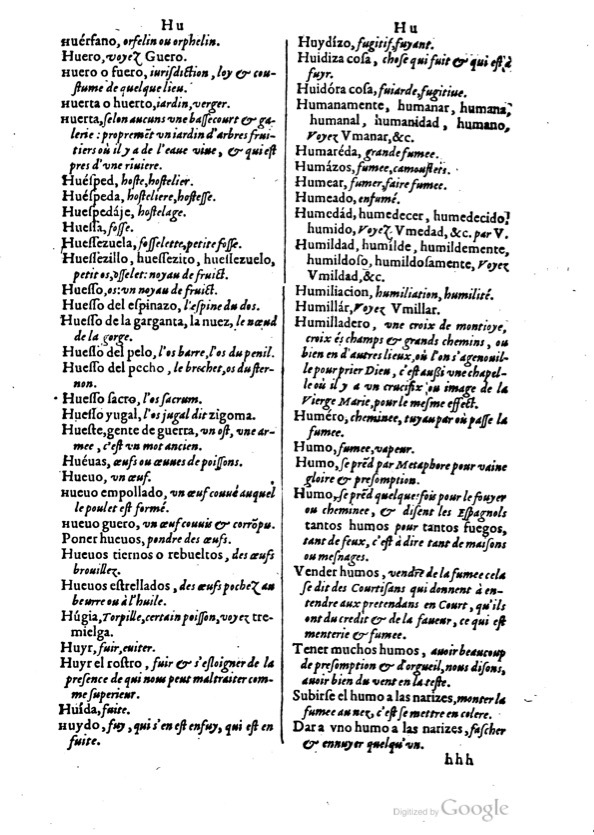 Hu
Huérfano, orfelin ou orphelin.
Huero, voyez Guero.
Huero o fuero, iurisdiction, loy & cou-
stume de quelque lieu.
Huerta o huerto, iardin, verger.
Huerta, selon aucuns vne bassecourt & ga-
lerie: propremēt vn iardin d'arbres frui-
tiers où il y a de l'eaue viue, & qui est
pres d'vne riuiere.
Huésped, hoste, hostelier.
Huéspeda, hosteliere, hostesse.
Huespedáje, hostelage.
Huessa, fosse.
Huessezuela, fosselette, petite fosse.
Huessezillo, huessezito, huessezuelo,
petit os, osselet: noyau de fruict.
Huesso, os: vn noyau de fruict.
Huesso del espinazo, l'espine du dos.
Huesso de la garganta, la nuez, le nœud
de la gorge.
Huesso del pelo, l'os barre, l'os du penil.
Huesso del pecho, le brechet, os du ster-
non.
Huesso sacro, l'os sacrum.
Huesso yugal, l'os jugal dit zigoma.
Hueste, gente de guerra, vn ost, vne ar-
mee, c'est vn mot ancien.
Huéuas, œufs ou œuues de poissons.
Hueuo, vn œuf.
Hueuo empollado, vn œuf couué auquel
le poulet est formé.
Hueuo guero, vn œuf couuis & corrōpu.
Poner hueuos, pondre des œufs.
Hueuos tiernos o rebueltos, des œufs
brouillez.
Hueuos estrellados, des œufs pochez au
beurre ou à l'huile.
Húgia, Torpille, certain poisson, voyez tre-
mielga.
Huyr, fuir, euiter.
Huyr el rostro, fuir & s'esloigner de la
presence de qui nous peut maltraiter com-
me superieur.
Huída, fuite.
Huydo, fuy, qui s'en est enfuy, qui est en
fuite.
Hu
Huydízo, fugitif, fuyant.
Huidiza cosa, chose qui fuit & qui est à
fuyr.
Huidóra cosa, fuiarde, fugitiue.
Humanamente, humanar, humana,
humanal, humanidad, humano,
Voyez Vmanar, &c.
Humaréda, grande fumee.
Humázos, fumee, camouflets.
Humear, fumer, faire fumee.
Humeado, enfumé.
Humedád, humedecer, humedecido,
humido, Voyez Vmedad, &c. par V.
Humildad, humilde, humildemente,
humildoso, humildosamente, Voyez
Vmildad, &c.
Humiliacion, humiliation, humilité.
Humillár, Voyez Vmillar.
Humilladero, vne croix de montioye,
croix és champs & grands chemins, ou
bien en d'autres lieux, où l'on s'agenouil-
le pour prier Dieu, c'est außi vne chapel-
le où il y a vn crucifix ou image de la
Vierge Marie, pour le mesme effect.
Huméro, cheminee, tuyau par où passe la
fumee.
Humo, fumee, vapeur.
Humo, se prēd par Metaphore pour vaine
gloire & presomption.
Humo, se prēd quelquefois pour le fouyer
ou cheminee, & disent les Espagnols
tantos humos pour tantos fuegos,
tant de feux, c'est à dire tant de maisons
ou mesnages.
Vender humos, vendre de la fumee cela
se dit des Courtisans qui donnent à en-
tendre aux pretendans en Court, qu'ils
ont du credit & de la faueur, ce qui est
menterie & fumee.
Tener muchos humos, auoir beaucoup
de presomption & d'orgueil, nous disons,
auoir bien du vent en la teste.
Subirse el humo a las narizes, monter la
fumee au nez, c'est se mettre en colere.
Dar a vno humo a las narizes, fascher
& ennuyer quelqu'vn.
hhh
Digitized by Google